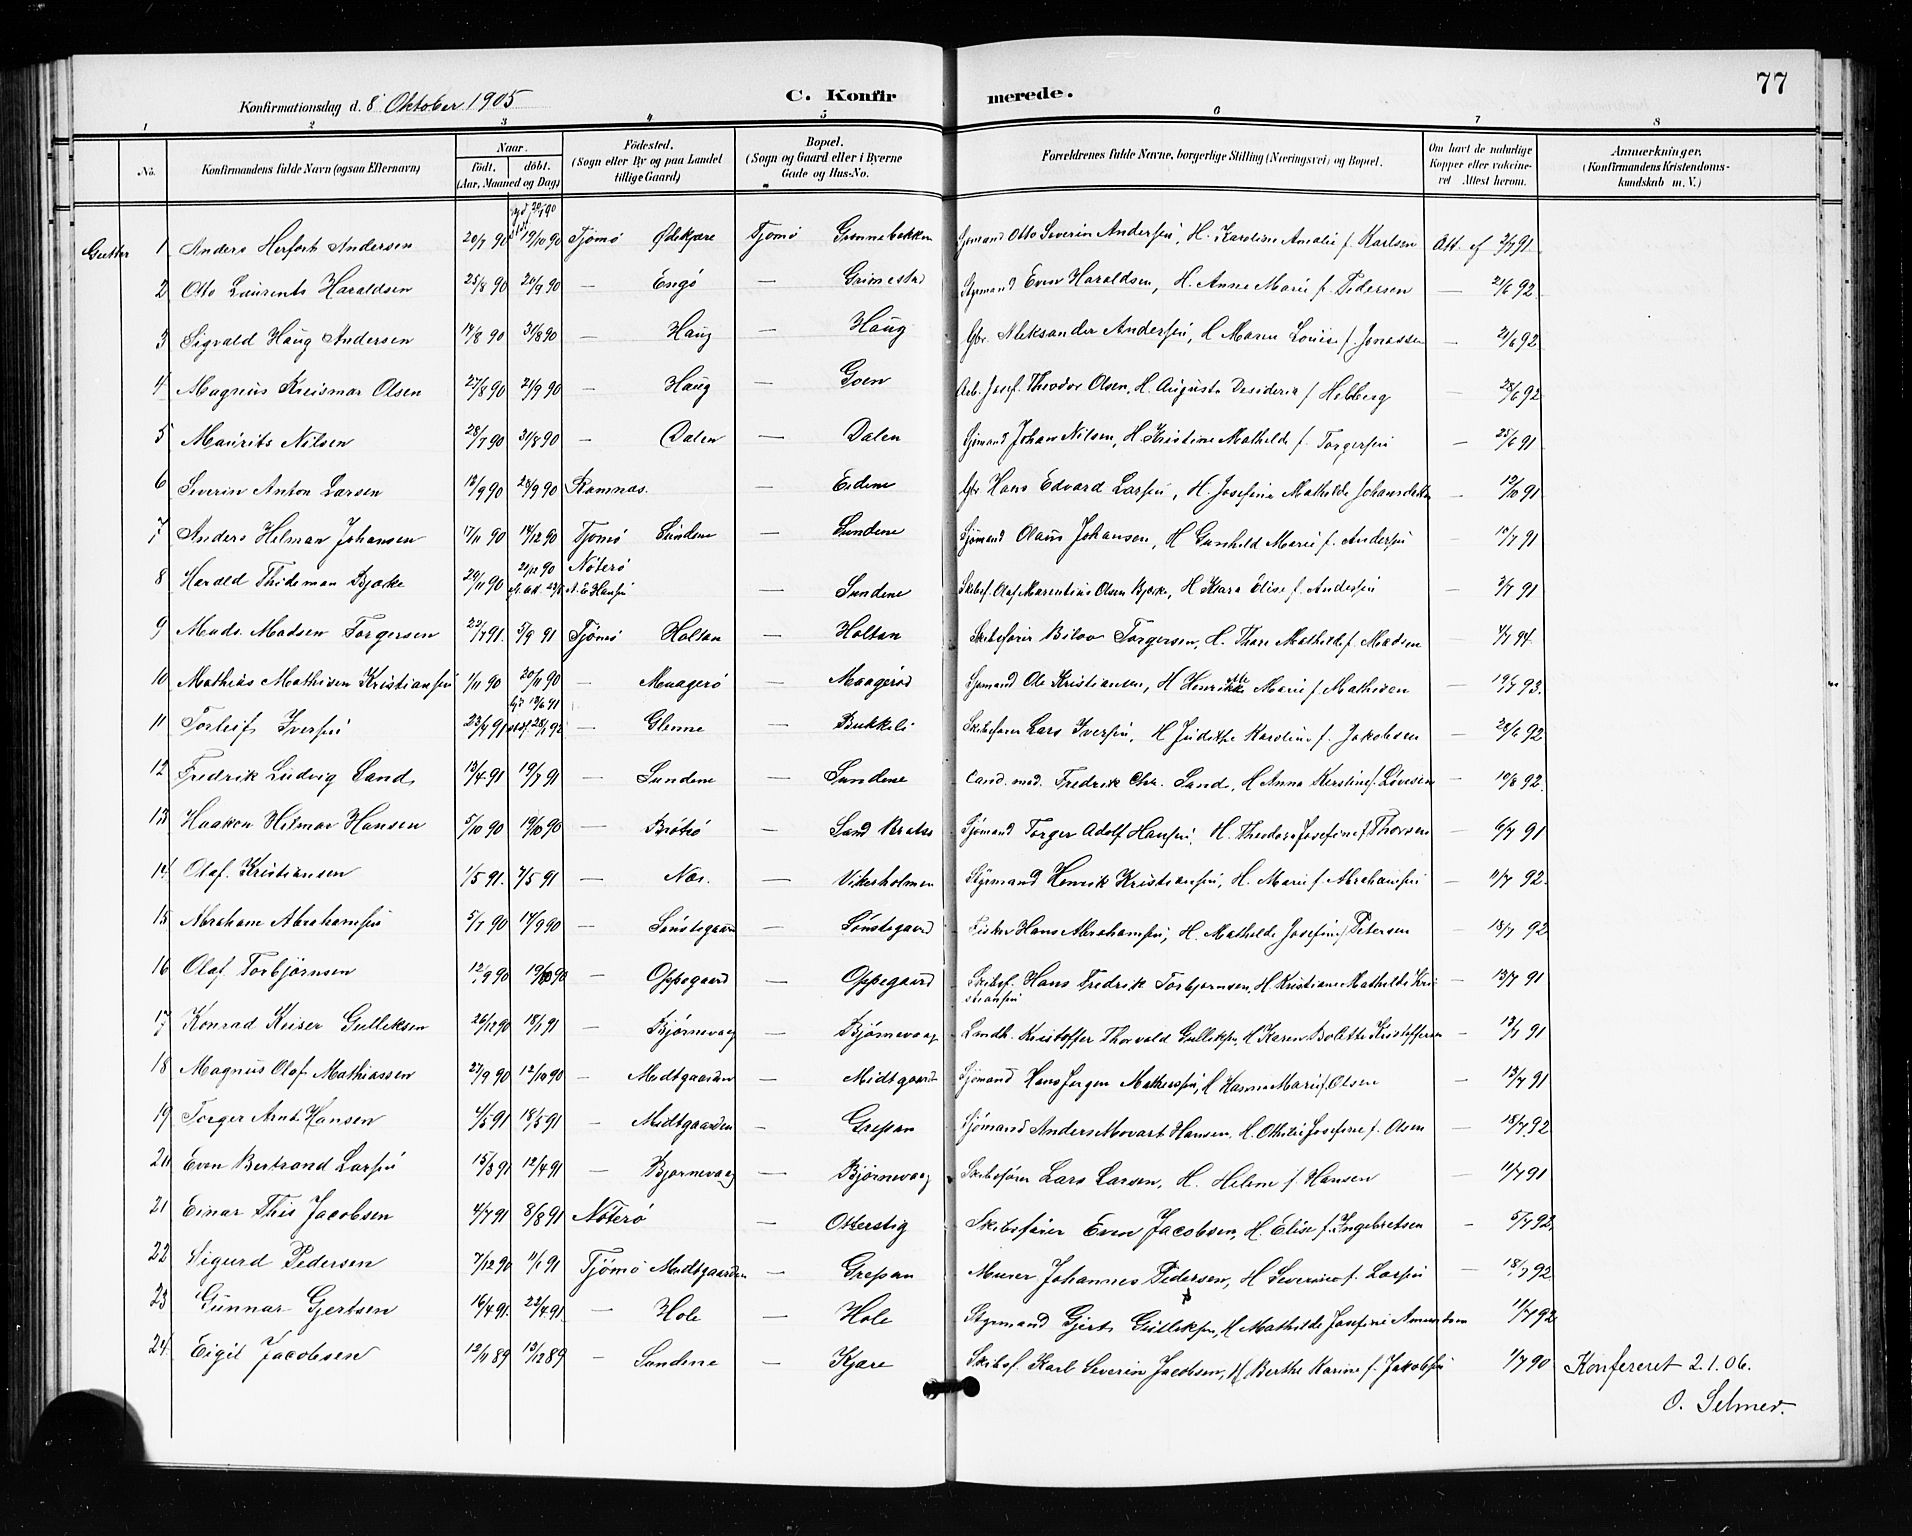 77
Konfirmationsdag d. 8 Oktober 1905 C. Konfirmerede.
1 2 3 4 5 6 7 8
No. Konfirmandens fulde Navn (ogsaa Efternavn) Naar. født. døbt. (Aar, Maaned og Dag) Fødested. (Sogn eller By og paa Landet tillige Gaard) Bopæl. (Sogn og Gaard eller i Byerne Gade og Hus-No. Forældrenes fulde Navne, borgerlige Stilling (Næringsvei) og Bopæl. Om havt de naturlige Kopper eller vakcinevet Attest herom. Anmærkninger. (Konfirmandens Kristendomskundskab m. V.)
Gutter 1 Anders Herfort Andersen 20/7 90 19/10 90 Tjømø Ødekjære Tjømø Grønnebakken Sjømand Otto Severin Andersen, H. Karoline Amalie f. Karlsen Att. af 3/7 91.
2 Otto Laurents Haraldsen 25/8 90 20/9 90 — Engø — Grimestad Styrmand Even Haraldsen, H. Anne Marie f. Pedersen — 21/6 92
3 Sigvald Haug Andersen 14/8 90 31/8 90 — Haug — Haug Gbr. Aleksander Andersen, H Maren Louise f. Jonassen — 21/6 92
4 Magnus Kreismar Olsen 27/8 90 21/9 90 — Haug — Goen Arb. Josef Theodor Olsen, H. Augusta Desideria f Helberg 28/6 92
5 Maurits Nilsen 28/7 90 31/8 90 — Dalen — Dalen Sjømand Johan Nilsen, H. Kristine Mathilde f. Torgersen — 25/6 91
6 Severin Anton Larsen 12/9 90 28/9 90 Ramnæs. — Eidene Gbr Hans Edvard Larsen, H. Josefine Mathilde Johansdatter — 12/10 91
7 Anders Helman Johansen 17/11 90 14/12 90 Tjømø Sundene — Sundene Sjømand Olaus Johansen, H Gunhild Marie f. Andersen — 10/7 91
8 Harald Thideman Bjørke 20/11 90 21/12 90 Nøterø — Sundene Skibsf. Olaf Marentius Olsen Bjærke, H Klara Elise f. Andersen — 3/7 91
9 Mads Madsen Torgersen 22/7 91. 5/9 91 Tjømø Holtan — Holtan Skibsfører Bilov Torgersen, H. Thare Mathilde f. Madsen 4/7 94.
10 Mathias Mathisen Kristiansen 1/11 90 20/11 90 — Maagerø — Maagerød Sjømand Ole Kristiansen, H Henrikke Marie f. Mathisen — 19/7 93.
11 Torleif Iversen 23/4 91 — Glenne — Bukkeli Skibsfører Lars Iversen, H Judithe Karoline f. Jakobsen — 28/6 92
12 Fredrik Ludvig Sand 13/4 91 19/7 91 — Sundene — Sundene Cand. med. Fredrik Chr. Sand, H Anna Kerstine f. Løvesen — 10/8 92.
13 Haakon Hilmar Hansen 5/10 90 19/10 90 — Brøtsø — Sand Brøtsø Sjømand Torger Adolf Hansen, H. Theodora Josefine f Thorsen — 6/7 91
14 Olaf Kristiansen 1/5 91. 7/5 91 — Næs. — Vikerholmen Styrmand Henrik Kristiansen, H. Marie f. Abrahamsen — 11/7 92.
15 Abraham Abrahamsen 5/7 90 14/9 90 — Sønstegaard — Sønstegaard Fisker Hans Abrahamsen, H. Mathilde Josefine f Petersen — 18/7 92
16 Olaf Torbjørnsen 12/9 90 19/10 90 — Oppegaard — Oppegaard Skibsf. Hans Fredrik Torbjørnsen, H Kristiane Mathilde Kristiansen — 13/7 91
17 Konrad Keiser Gulleksen 26/12 90 18/1 91 — Bjørnevaag — Bjørnevaag Landh. Kristoffer Thorvald Gulleksen, H Karen Bolette Kristoffersen — 13/7 91
18 Magnus Olaf Mathiassen 27/9 90 12/10 90 — Midtgaarden — Midtgaard Sjømand Hans Jørgen Mathiassen, H Hanna Marie f. Olsen — 13/7 91
19 Torger Arnt Hansen 4/5 91 18/5 91 — Midtgaarden — Grepan Sjømand Anders Movart Hansen, H. Othilie Josefine f. Olsen — 18/7 92
20 Even Bertrand Larsen 15/3 91 12/4 91 — Bjørnevaag — Bjørnevaag Skibsfører Lars Larsen, H. Helene f. Hansen — 11/7 91
21 Einar This Jacobsen 4/7 91 8/8 91 Nøterø — Otterstig Skibsfører Even Jacobsen, H. Elise f. Ingebretsen — 5/7 92
22 Sigurd Pedersen 7/12 90 11/1 91 Tjømø Midtgaarden — Grepan Murer Johannes Pedersen, H Severine f. Larsen — 18/7 92
23 Gunnar Gjertsen 16/4 91. 22/4 91. — Hole — Hole Styrmand Gjert Gulleksen, H Mathilde Josefine Amundsen 11/7 92
24 Eigil Jacobsen 12/11 89 13/12 89 — Sundene — Kjære Skibsf. Karl Severin Jacobsen, H Berthe Karine f. Jakobsen 1/7 90 Konfereret 2.1.06.
O. Selmer.